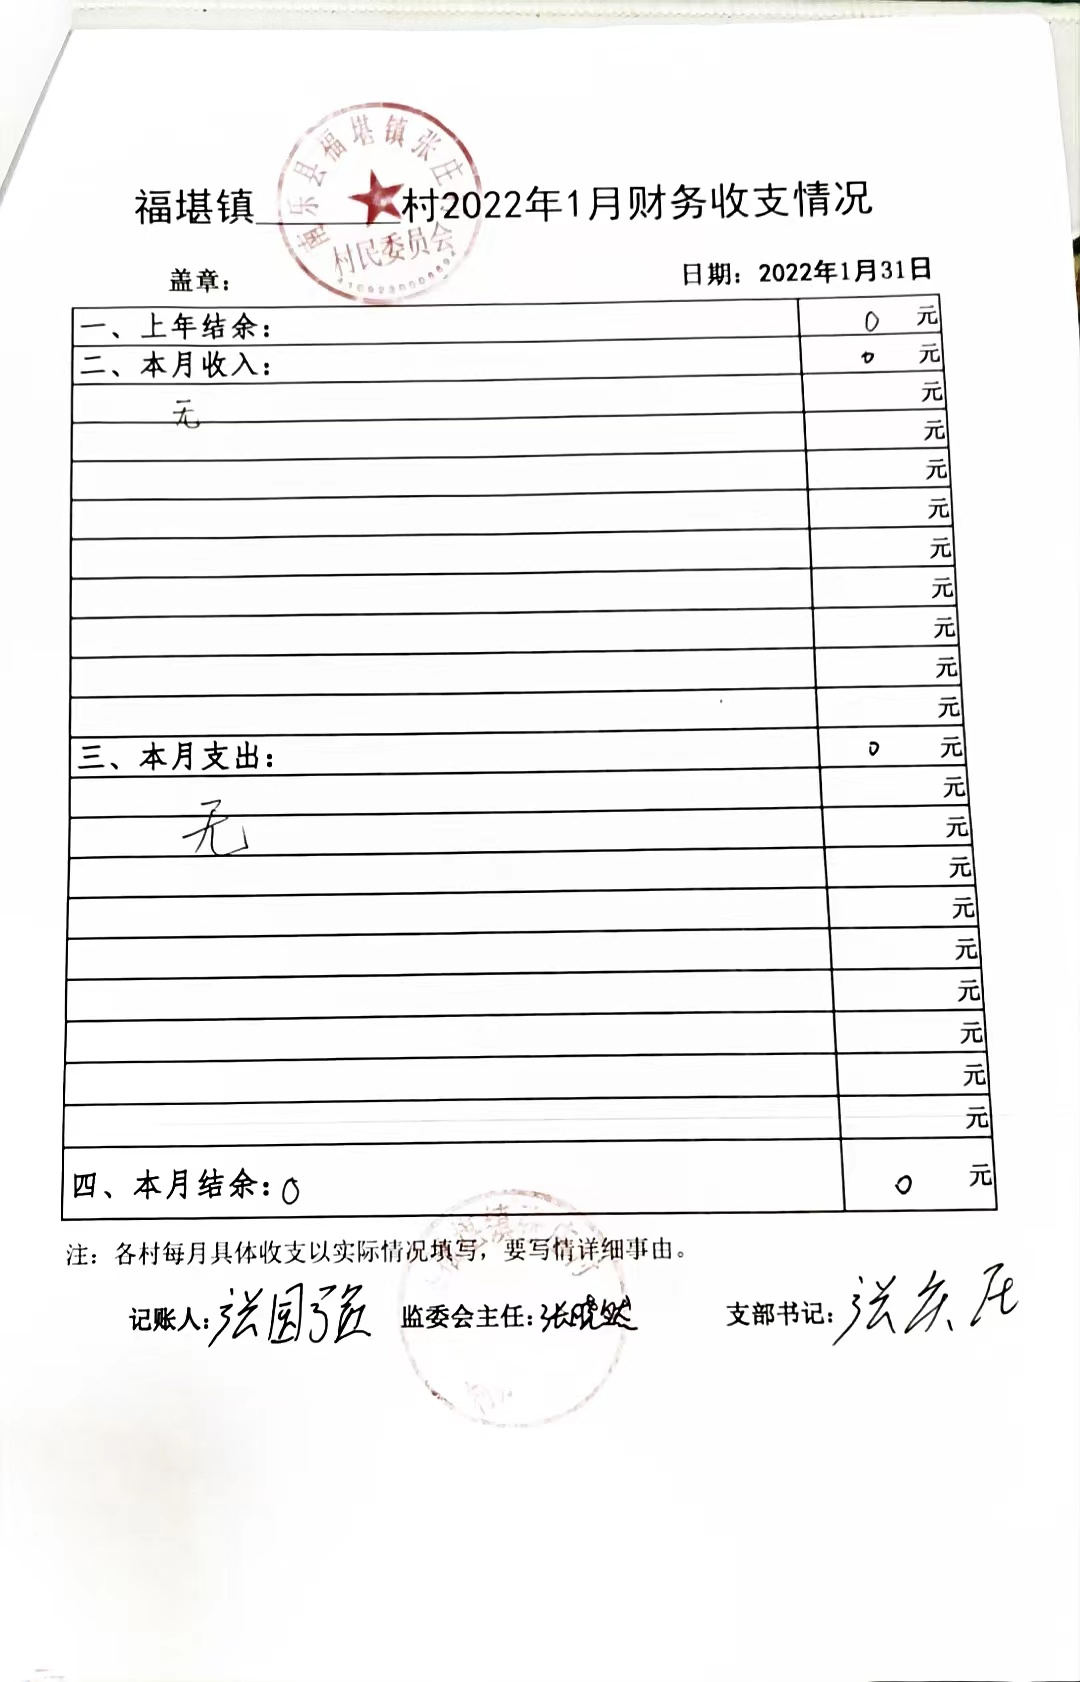 南乐县福堪镇张庄
村民委员会
福堪镇______村2022年1月财务收支情况
盖章： 日期：2022年1月31日
一、上年结余： 0 元
二、本月收入： 0 元
无 元
元
元
元
元
元
元
元
元
三、本月支出： 0 元
元
无 元
元
元
元
元
元
元
元
四、本月结余：0 0 元
注：各村每月具体收支以实际情况填写，要写情详细事由。
记账人：张国强 监委会主任：张晓然 支部书记：张